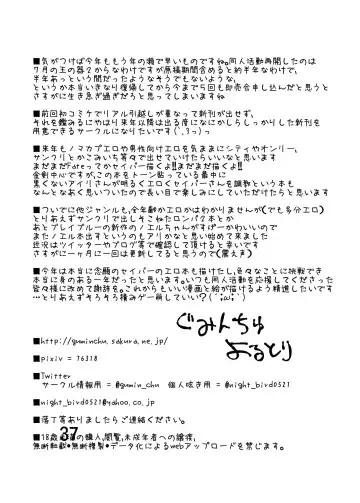 ■気がつけば今年ももう年の瀬で早いものですね。同人活動再開したのは
7月の王の器2からなわけですが原稿期間含めると約半年なわけで、
半年あっという間だったようなそうでもないような、
というか本当いきなり復帰してから今まで5回も即売会申し込んだと思うと
さすがに生き急ぎ過ぎだろと思ってしまいますね
■前回初コミケでリアル引越しが重なって新刊が出せず、
それを鑑みるにやはり来年以降は出る度になにかしらしっかりした新刊を
用意できるサークルになりたいです(`,ｦっ)っ
■来年もノマカプエロや男性向けエロを気ままにシティやオンリー、
サンクリとかこみいち等々で出せていけたらいいなと思います
まだまだFateってかセイバー描くよ!!まだまだ描くよ!!
金剣中心ですが、この本をトーン貼っている最中に
黒くないアイリさんが明るくエロくセイバーさんを調教という本も
なんとなあく思いついたので長い目で楽しみにしていただけたらと思います
■ついでに他ジャンルも、全年齢かエロかはわかりませんが(でも多分エロ)
とりあえずサンクリで出しそこねたロンパ2本とか
あとブレイブルーの新作のノエルちゃんがすげーかわいいので
またノエル本出すというのもアリかなと思い始めて来ました
近況はツイッターやブログ等で確認して頂けると幸いです
さすがに一ヶ月に一回は更新してると思うので(震え声)
■今年は本当に念願のセイバーのエロ本も描けたし、色々なことに挑戦でき
本当に身のある一年だったと思います。いつも同人活動を応援してくださった
皆々様に改めて謝辞を。これからもいい漫画と絵が描けるよう精進したいです
…とりあえずそろそろ積みゲー崩していい?(´;ω;`)
ぐみんちゅ
よるとり
■http://guminchu.sakura.ne.jp/
■pixiv = 76318
■Twitter
サークル情報用 = @gumin_chu 個人呟き用 = @night_bird0521
■night_bird0521@yahoo.co.jp
■落丁等ありましたらご連絡ください。
■18歳未満の購入,閲覧,未成年者への譲渡,
無断転載•無断複製•データ化によるwebアップロードを禁じます。
37